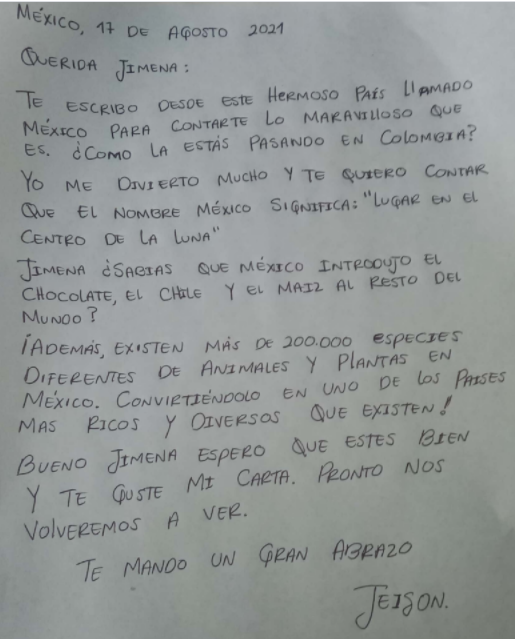 MÉXICO, 17 DE AGOSTO 2021
QUERIDA JIMENA:
TE ESCRIBO DESDE ESTE HERMOSO PAÍS LLAMADO
MÉXICO PARA CONTARTE LO MARAVILLOSO QUE
ES. ¿COMO LA ESTÁS PASANDO EN COLOMBIA?
YO ME DIVIERTO MUCHO Y TE QUIERO CONTAR
QUE EL NOMBRE MÉXICO SIGNIFICA: "LUGAR EN EL
CENTRO DE LA LUNA"
JIMENA ¿SABIAS QUE MÉXICO INTRODUJO EL
CHOCOLATE, EL CHILE Y EL MAIZ AL RESTO DEL
MUNDO?
¡ADEMÁS, EXISTEN MÁS DE 200.000 ESPECIES
DIFERENTES DE ANIMALES Y PLANTAS EN
MÉXICO. CONVIRTIÉNDOLO EN UNO DE LOS PAISES
MAS RICOS Y DIVERSOS QUE EXISTEN!
BUENO JIMENA ESPERO QUE ESTES BIEN
Y TE GUSTE MI CARTA. PRONTO NOS
VOLVEREMOS A VER.
TE MANDO UN GRAN ABRAZO
JEISON.